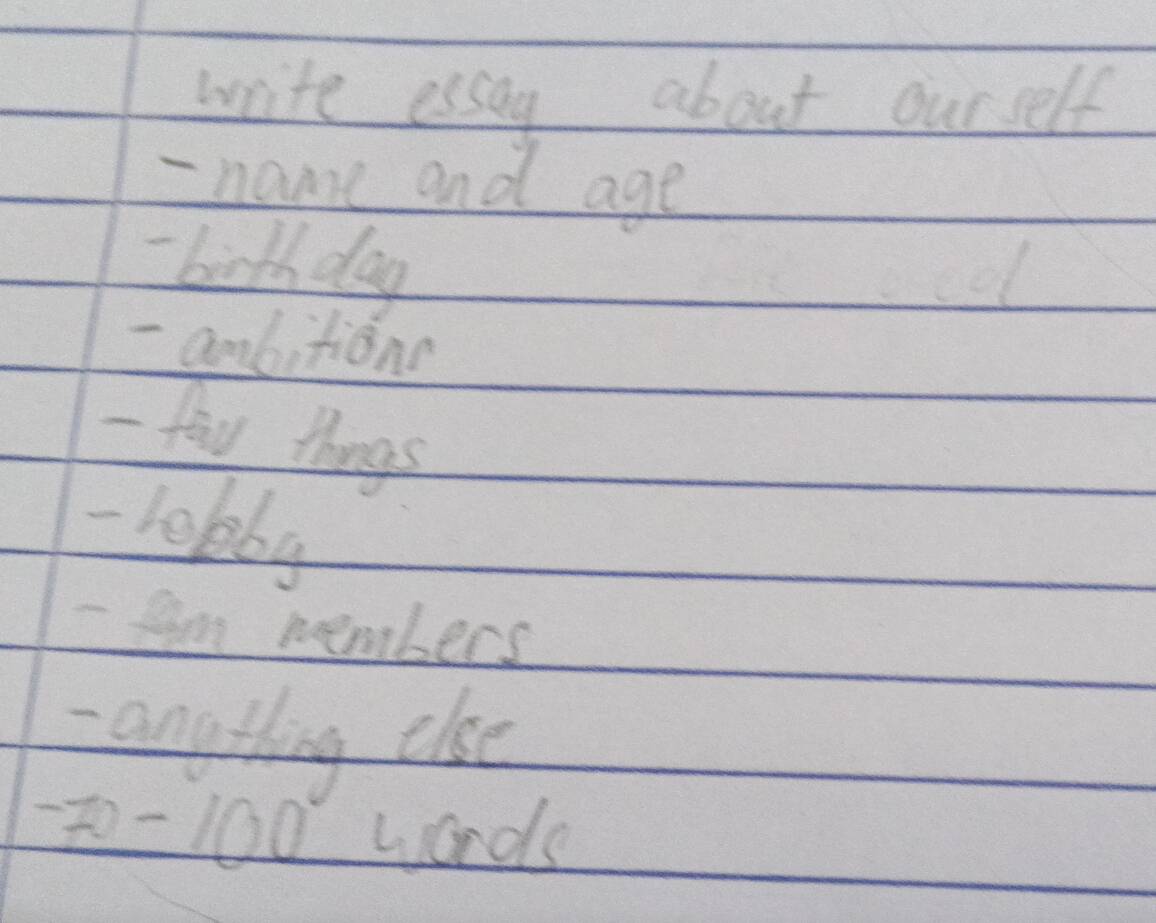 write essay about ourself
- name and age
- birthday
- ambitions
- fav things
- hobby
- fam members
- anything else
- 70 - 100 words